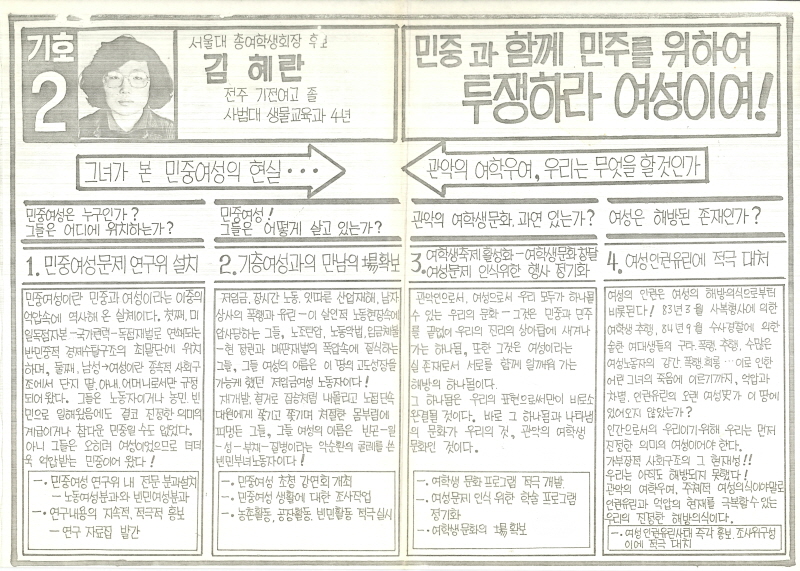 기호
2
서울대 총여학생회장 후보
김 혜란
전주 기전여고 졸
사범대 생물교육과 4년
민중과 함께 민주를 위하여
투쟁하라 여성이여!
그녀가 본 민중여성의 현실···
관악의 여학우여, 우리는 무엇을 할것인가
민중여성은 누구인가?
그들은 어디에 위치하는가?
1. 민중여성문제 연구위 설치
민중여성이란 민중과 여성이라는 이중의
억압속에 역사해 온 실체이다. 첫째, 미
일독점자본-국가권력-독점재벌로 연결되는
반민중적 경제수탈구조의 최말단에 위치
하며, 둘째, 남성→여성이란 종속적 사회구
조에서 단지 딸, 아내, 어머니로서만 규정
되어 왔다. 그들은 노동자이거나 농민, 빈
민으로 일해왔음에도 결코 진정한 의미의
계급이거나 참다운 민중일 수도 없었다.
아니 그들은 오히려 여성이었으므로 더더
욱 억압받는 민중이어 왔다!
-· 민중여성 연구위 내 전문 분과설치
- 노동여성분과와 빈민여성분과
-· 연구내용의 지속적, 적극적 홍보
- 연구 자료집 발간
민중여성!
그들은 어떻게 살고 있는가?
2. 기층여성과의 만남의 場확보
저임금, 장시간 노동, 잇따르는 산업재해, 남자
상사의 폭행과 유린- 이 살인적 노동현장속에
압사당하는 그들, 노조탄압, 노동악법, 임금체불
- 현 정권과 매판재벌의 폭압속에 질식하는
그들, 그들 여성의 이름은 이 땅의 고도성장을
가능케 했던 저임금여성 노동자이다!
재개발, 철거로 집잃처럼 내몰리고 노점단속
대원에게 쫓기고 쫓기며 처절한 몸부림에
피멍든 그들, 그들 여성의 이름은 빈곤-일
-성-부채-질병이라는 악순환의 굴레를 쓴
빈민부녀노동자이다!
-· 민중여성 초청 강연회 개최
-· 민중여성 생활에 대한 조사작업
-· 농촌활동, 공장활동, 빈민활동 적극실시
관악의 여학생문화. 과연 있는가?
3. ·여학생축제 활성화-여학생문화창달
·여성문제 인식위한 행사 정기화
관악인으로서, 여성으로서 우리 모두가 하나될
수 있는 우리의 문화 - 그것은 민중과 민주
를 끝없이 우리의 진리의 상아탑에 새겨나
가는 하나됨, 또한 그것은 여성이라는
실 존재로서 서로를 함께 일깨워 가는
해방의 하나됨이다.
그 하나됨은 우리의 표현으로써만이 비로소
완결될 것이다. 바로 그 하나됨과 나타냄
의 문화가 우리의 것, 관악의 여학생
문화인 것이다.
-· 여학생 문화 프로그램 적극 개발
-· 여성문제 인식 위한 학술 프로그램
정기화
-· 여학생문화의 場 확보
여성은 해방된 존재인가?
4. 여성인권유린에 적극 대처
여성의 인권은 여성의 해방의식으로부터
비롯된다! 83년 3월 사복형사에 의한
여학생 추행, 84년 9월 수사경찰에 의한
숱한 여대생들의 구타, 폭행, 추행, 수많은
여성노동자의 강간, 폭행, 희롱···이로 인한
어린 그녀의 죽음에 이르기까지, 억압과
차별, 인권유린의 오랜 여성史가 이 땅에
있어오지 않았는가?
인간으로서의 우리이기 위해 우리는 먼저
진정한 의미의 여성이어야 한다.
가부장적 사회구조의 그 현재성!!
우리는 아직도 해방되지 못했다!
관악의 여학우여, 주체적 여성의식이야말로
인권유린과 억압의 현재를 극복할수 있는
우리의 진정한 해방의식이다.
-· 여성인권유린사태 즉각 홍보, 조사위구성
이에 적극 대처